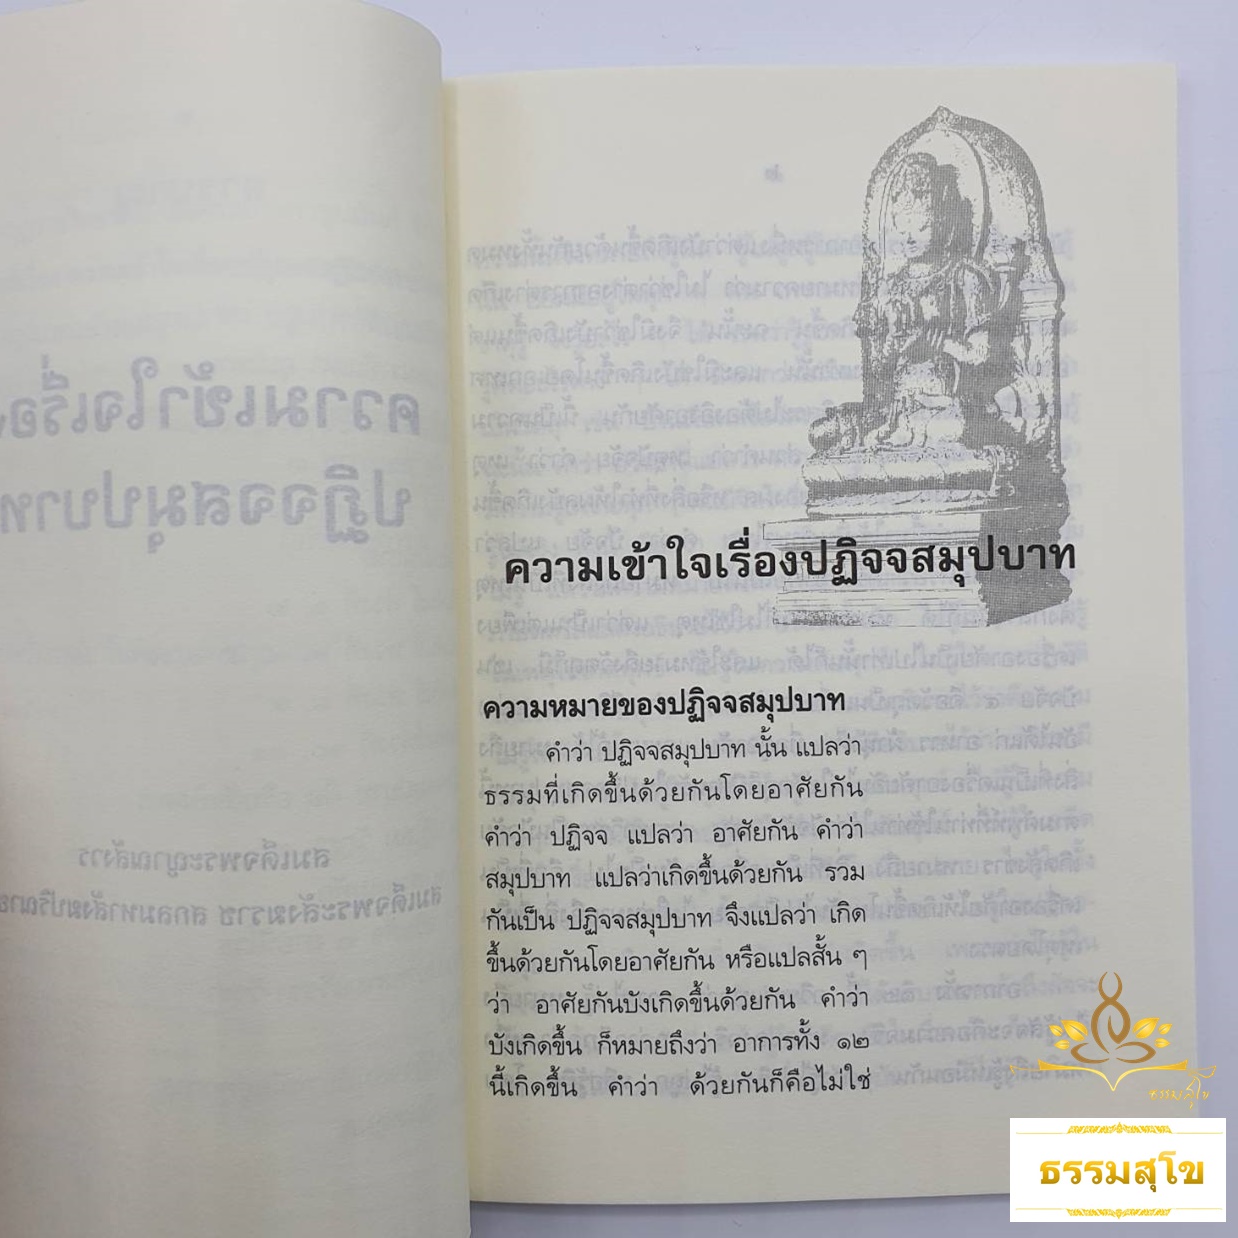 ความเข้าใจเรื่องปฏิจจสมุปบาท
ความหมายของปฏิจจสมุปบาท
คำว่า ปฏิจจสมุปบาท นั้น แปลว่า
ธรรมที่เกิดขึ้นด้วยกันโดยอาศัยกัน
คำว่า ปฏิจจ แปลว่า อาศัยกัน คำว่า
สมุปบาท แปลว่าเกิดขึ้นด้วยกัน รวม
กันเป็น ปฏิจจสมุปบาท จึงแปลว่า เกิด
ขึ้นด้วยกันโดยอาศัยกัน หรือแปลสั้น ๆ
ว่า อาศัยกันบังเกิดขึ้นด้วยกัน คำว่า
บังเกิดขึ้น ก็หมายถึงว่า อาการทั้ง ๑๒
นี้เกิดขึ้น คำว่า ด้วยกันก็คือไม่ใช่
ธรรมสุโข
ธรรมสุโข